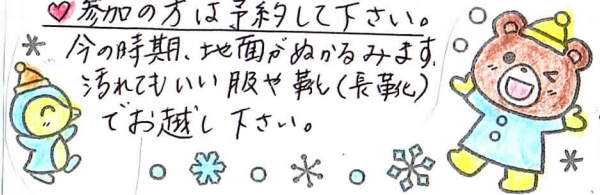 ♡参加の方は予約して下さい。
今の時期、地面がぬかるみます。
汚れてもいい服や靴(長靴)
でお越し下さい。